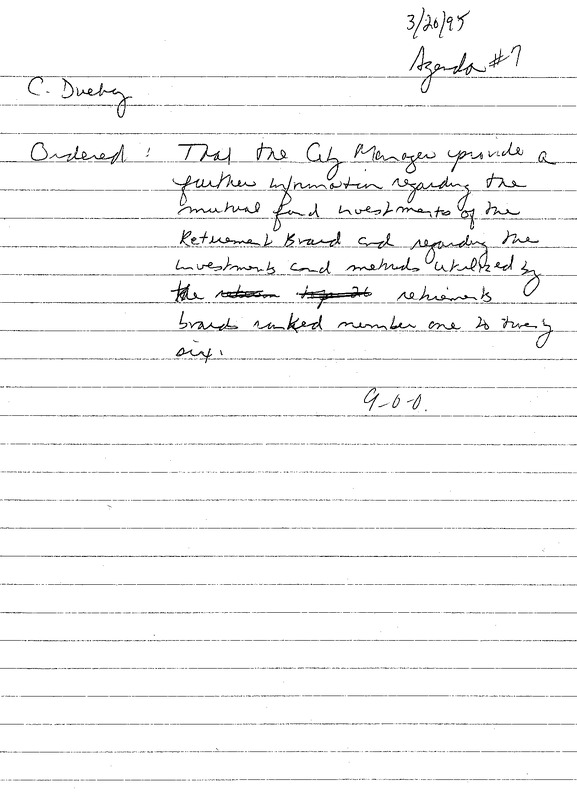 3/20/95
Agenda #7
C. Duehay
Ordered : That the City Manager provide a
further information regarding the
mutual fund investments of the
Retirement Board and regarding the
investments and methods utilized by
the retirements
boards ranked number one to twenty
six.
9-0-0.